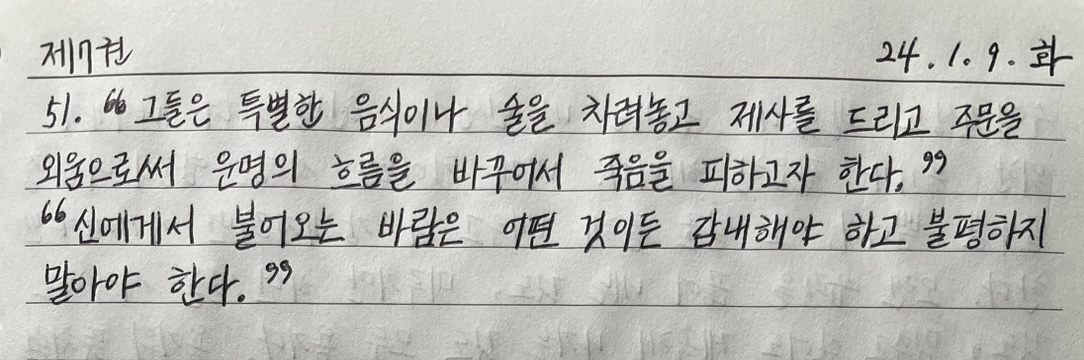 제7권 24. 1. 9. 화
51. “그들은 특별한 음식이나 술을 차려놓고 제사를 드리고 주문을
외움으로써 운명의 흐름을 바꾸어서 죽음을 피하고자 한다.”
“신에게서 불어오는 바람은 어떤 것이든 감내해야 하고 불평하지
말아야 한다.”